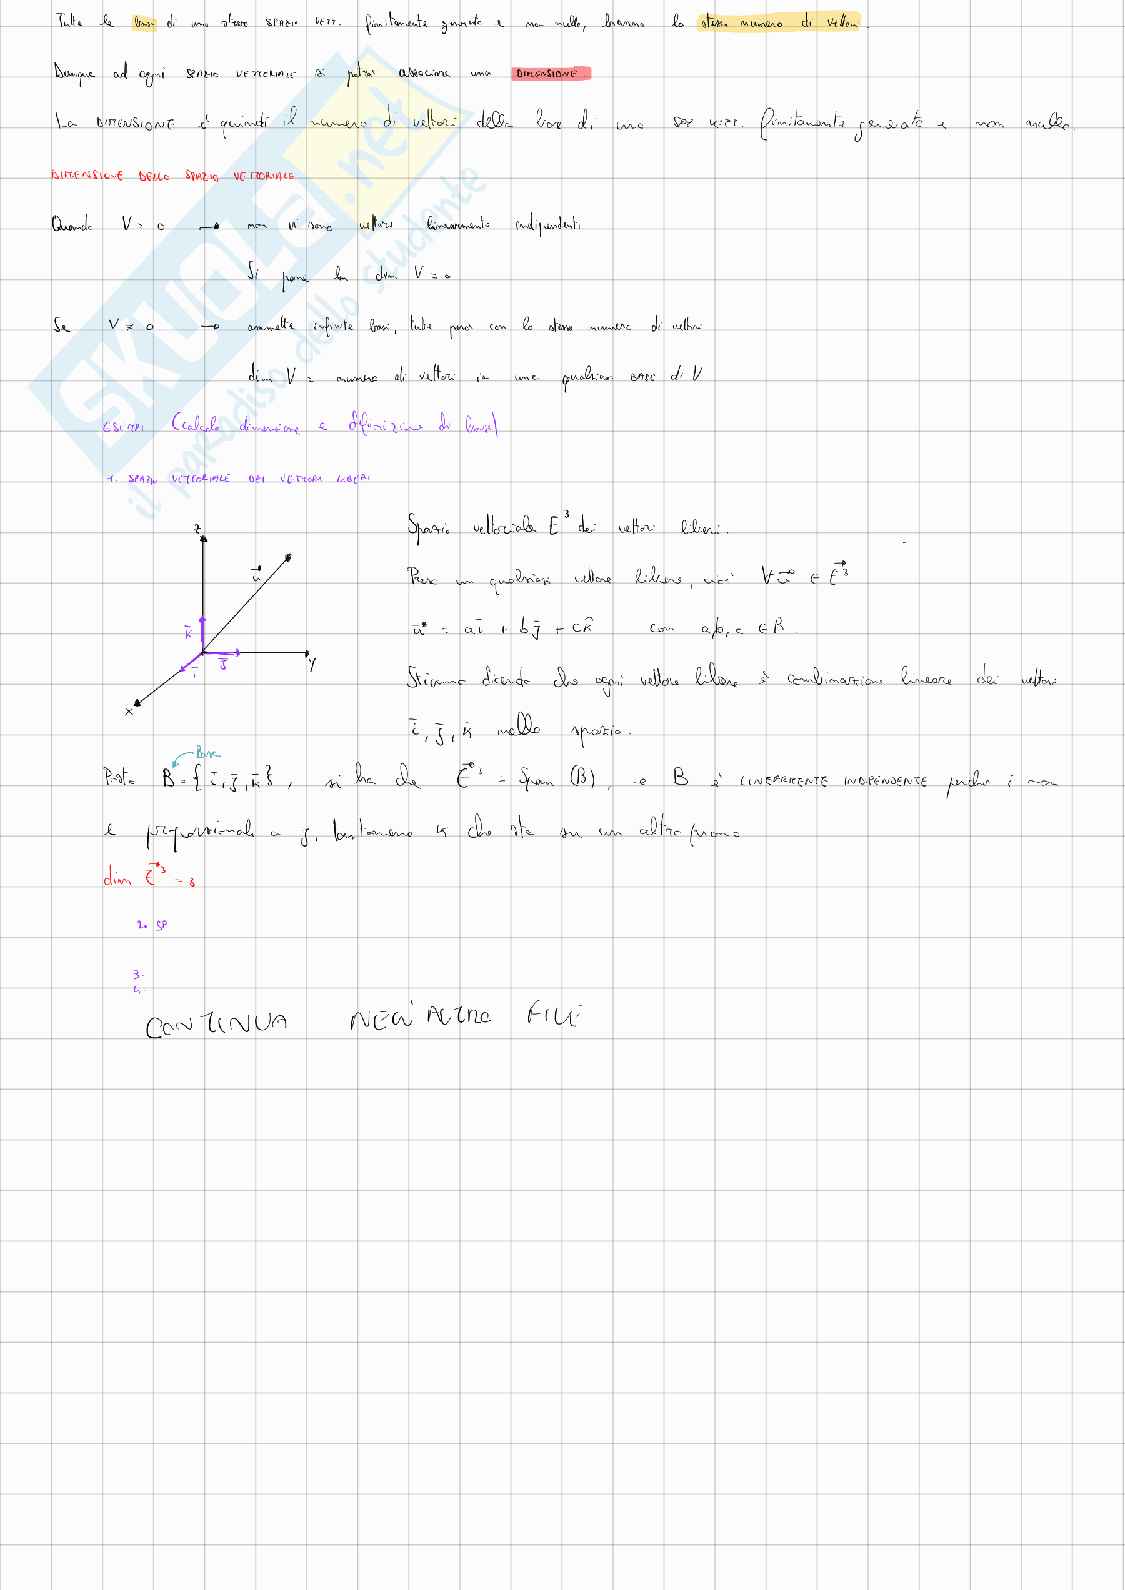 Tutte le basi di uno stesso SPAZIO VETT. finitamente generato e non nullo, hanno lo stesso numero di vettori.
Dunque ad ogni SPAZIO VETTORIALE si potrà associare una DIMENSIONE
La DIMENSIONE è quindi il numero di vettori della base di uno SPZ VETT. finitamente generato e non nullo.
DIMENSIONE DELLO SPAZIO VETTORIALE
Quando V = 0 → non vi sono vettori linearmente indipendenti
Si pone la dim V = 0
Se V ≠ 0 → ammette infinite basi, tutte però con lo stesso numero di vettori
dim V = numero di vettori in una qualsiasi BASE di V
ESEMPI (calcolo dimensione e definizione di base)
1. SPAZIO VETTORIALE DEI VETTORI LIBERI
Spazio vettoriale E³ dei vettori liberi.
Preso un qualsiasi vettore libero, ∀u⃗ ∈ E⃗³
u⃗ = ai̅ + bj̅ + ck̅ con a,b,c ∈ R
Stiamo dicendo che ogni vettore libero è combinazione lineare dei vettori
i̅, j̅, k̅ nello spazio.
z
u⃗
k̅
j̅
i̅
y
x
Base
Posto B = { i̅, j̅, k̅ }, si ha che E⃗³ = Span (B), e B è LINEARMENTE INDIPENDENTE perché i non
è proporzionale a j, tantomeno k che sta su un altro piano
dim E⃗³ = 3
2. SP
3.
4.
CONTINUA NELL'ALTRO FILE
SKUOLA.net
il paradiso dello studente